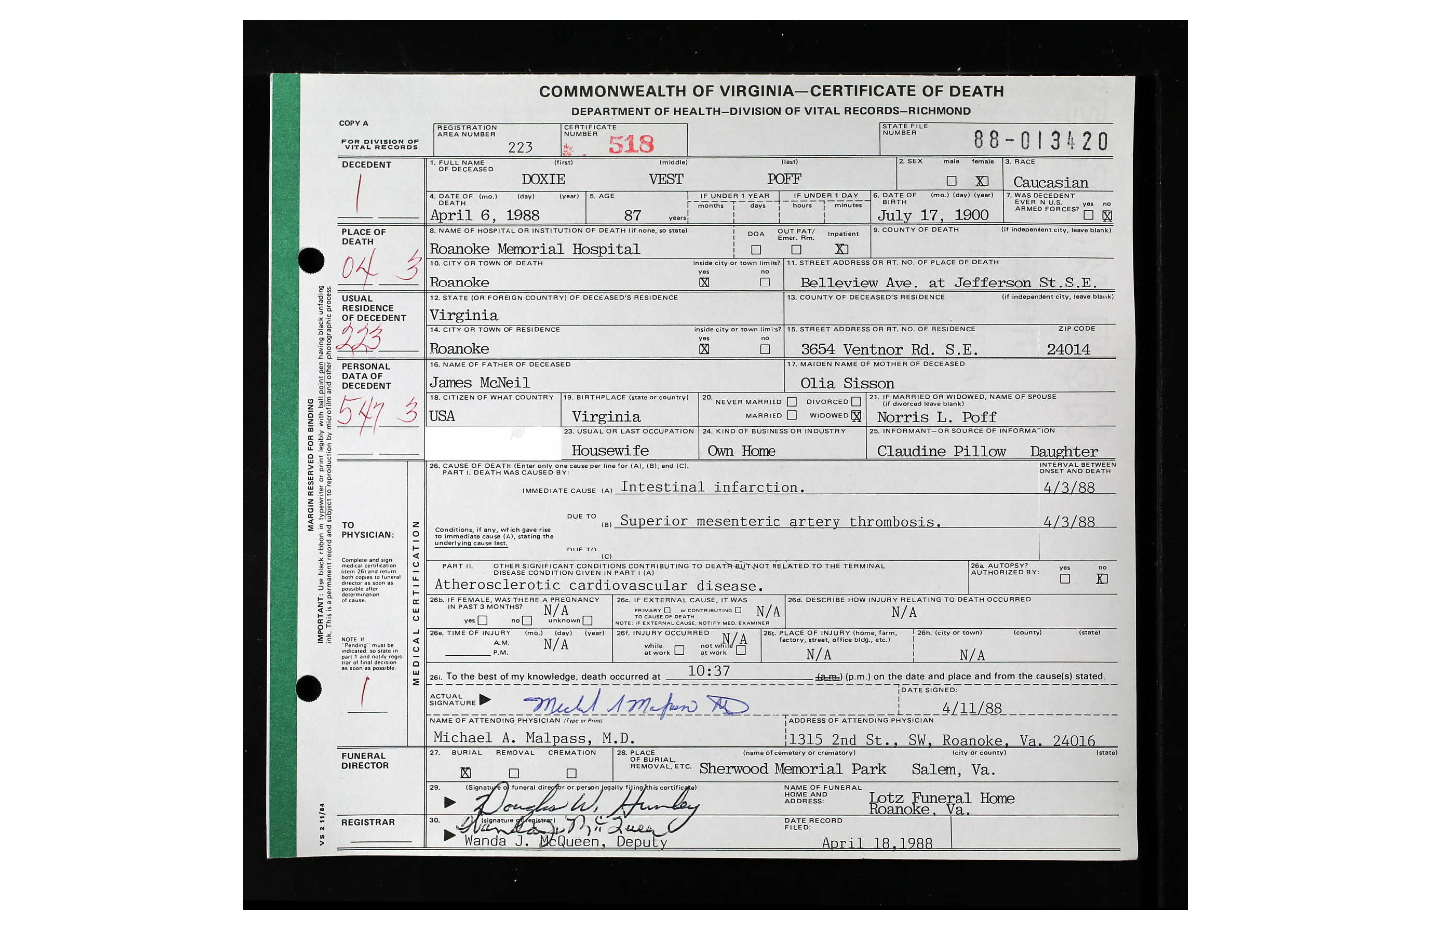 COMMONWEALTH OF VIRGINIA—CERTIFICATE OF DEATH
DEPARTMENT OF HEALTH—DIVISION OF VITAL RECORDS—RICHMOND
COPY A
FOR DIVISION OF VITAL RECORDS
REGISTRATION AREA NUMBER 223
CERTIFICATE NUMBER 518
STATE FILE NUMBER 88-013420
DECEDENT
1
1. FULL NAME OF DECEASED (first) (middle) (last)
DOXIE VEST POFF
2. SEX male female X
3. RACE Caucasian
4. DATE OF DEATH (mo.) (day) (year)
April 6, 1988
5. AGE 87 years
IF UNDER 1 YEAR months days
IF UNDER 1 DAY hours minutes
6. DATE OF BIRTH (mo.) (day) (year)
July 17, 1900
7. WAS DECEDENT EVER IN U.S. ARMED FORCES? yes no X
PLACE OF DEATH
04 3
8. NAME OF HOSPITAL OR INSTITUTION OF DEATH (if none, so state)
Roanoke Memorial Hospital
DOA OUT PAT/ Emer. Rm. Inpatient X
9. COUNTY OF DEATH (if independent city, leave blank)
10. CITY OR TOWN OF DEATH inside city or town limits? yes X no
Roanoke
11. STREET ADDRESS OR RT. NO. OF PLACE OF DEATH
Belleview Ave. at Jefferson St.S.E.
USUAL RESIDENCE OF DECEDENT
223
12. STATE (OR FOREIGN COUNTRY) OF DECEASED'S RESIDENCE
Virginia
13. COUNTY OF DECEASED'S RESIDENCE (if independent city, leave blank)
14. CITY OR TOWN OF RESIDENCE inside city or town limits? yes X no
Roanoke
15. STREET ADDRESS OR RT. NO. OF RESIDENCE ZIP CODE
3654 Ventnor Rd. S.E. 24014
PERSONAL DATA OF DECEDENT
547 3
16. NAME OF FATHER OF DECEASED
James McNeil
17. MAIDEN NAME OF MOTHER OF DECEASED
Olia Sisson
18. CITIZEN OF WHAT COUNTRY
USA
19. BIRTHPLACE (state or country)
Virginia
20. NEVER MARRIED DIVORCED
MARRIED WIDOWED X
21. IF MARRIED OR WIDOWED, NAME OF SPOUSE (if divorced leave blank)
Norris L. Poff
23. USUAL OR LAST OCCUPATION
Housewife
24. KIND OF BUSINESS OR INDUSTRY
Own Home
25. INFORMANT—OR SOURCE OF INFORMATION
Claudine Pillow Daughter
MARGIN RESERVED FOR BINDING
IMPORTANT: Use black ribbon in typewriter or print legibly with ball point pen having black unfading
ink. This is a permanent record and subject to reproduction by microfilm and other photographic process.
MEDICAL CERTIFICATION
TO PHYSICIAN:
Complete and sign medical certification (item 26) and return both copies to funeral director as soon as possible after determination of cause.
NOTE: If "Pending" must be indicated, so state in part 1 and notify registrar of final decision as soon as possible.
1
26. CAUSE OF DEATH (Enter only one cause per line for (A), (B), and (C).
PART I. DEATH WAS CAUSED BY:
INTERVAL BETWEEN ONSET AND DEATH
IMMEDIATE CAUSE (A) Intestinal infarction. 4/3/88
DUE TO (B) Superior mesenteric artery thrombosis. 4/3/88
Conditions, if any, which gave rise to immediate cause (A), stating the underlying cause last.
DUE TO (C)
PART II. OTHER SIGNIFICANT CONDITIONS CONTRIBUTING TO DEATH BUT NOT RELATED TO THE TERMINAL DISEASE CONDITION GIVEN IN PART I (A)
Atherosclerotic cardiovascular disease.
26a. AUTOPSY? AUTHORIZED BY: yes no X
26b. IF FEMALE, WAS THERE A PREGNANCY IN PAST 3 MONTHS? N/A
yes no unknown
26c. IF EXTERNAL CAUSE, IT WAS
PRIMARY or CONTRIBUTING TO CAUSE OF DEATH N/A
NOTE: IF EXTERNAL CAUSE, NOTIFY MED. EXAMINER
26d. DESCRIBE HOW INJURY RELATING TO DEATH OCCURRED
N/A
26e. TIME OF INJURY (mo.) (day) (year)
A.M. P.M. N/A
26f. INJURY OCCURRED N/A
while at work not while at work
26g. PLACE OF INJURY (home, farm, factory, street, office bldg., etc.)
N/A
26h. (city or town) (county) (state)
N/A
26i. To the best of my knowledge, death occurred at 10:37 (a.m.) (p.m.) on the date and place and from the cause(s) stated.
ACTUAL SIGNATURE
DATE SIGNED: 4/11/88
NAME OF ATTENDING PHYSICIAN (Type or Print)
Michael A. Malpass, M.D.
ADDRESS OF ATTENDING PHYSICIAN
1315 2nd St., SW, Roanoke, Va. 24016
FUNERAL DIRECTOR
27. BURIAL REMOVAL CREMATION
X
28. PLACE OF BURIAL, REMOVAL, ETC. (name of cemetery or crematory) (city or county) (state)
Sherwood Memorial Park Salem, Va.
29. (Signature of funeral director or person legally filing this certificate)
Douglas W. Hurley
NAME OF FUNERAL HOME AND ADDRESS:
Lotz Funeral Home
Roanoke, Va.
REGISTRAR
30. (signature of registrar)
Wanda J. McQueen
Wanda J. McQueen, Deputy
DATE RECORD FILED:
April 18,1988
VS 2 11/84